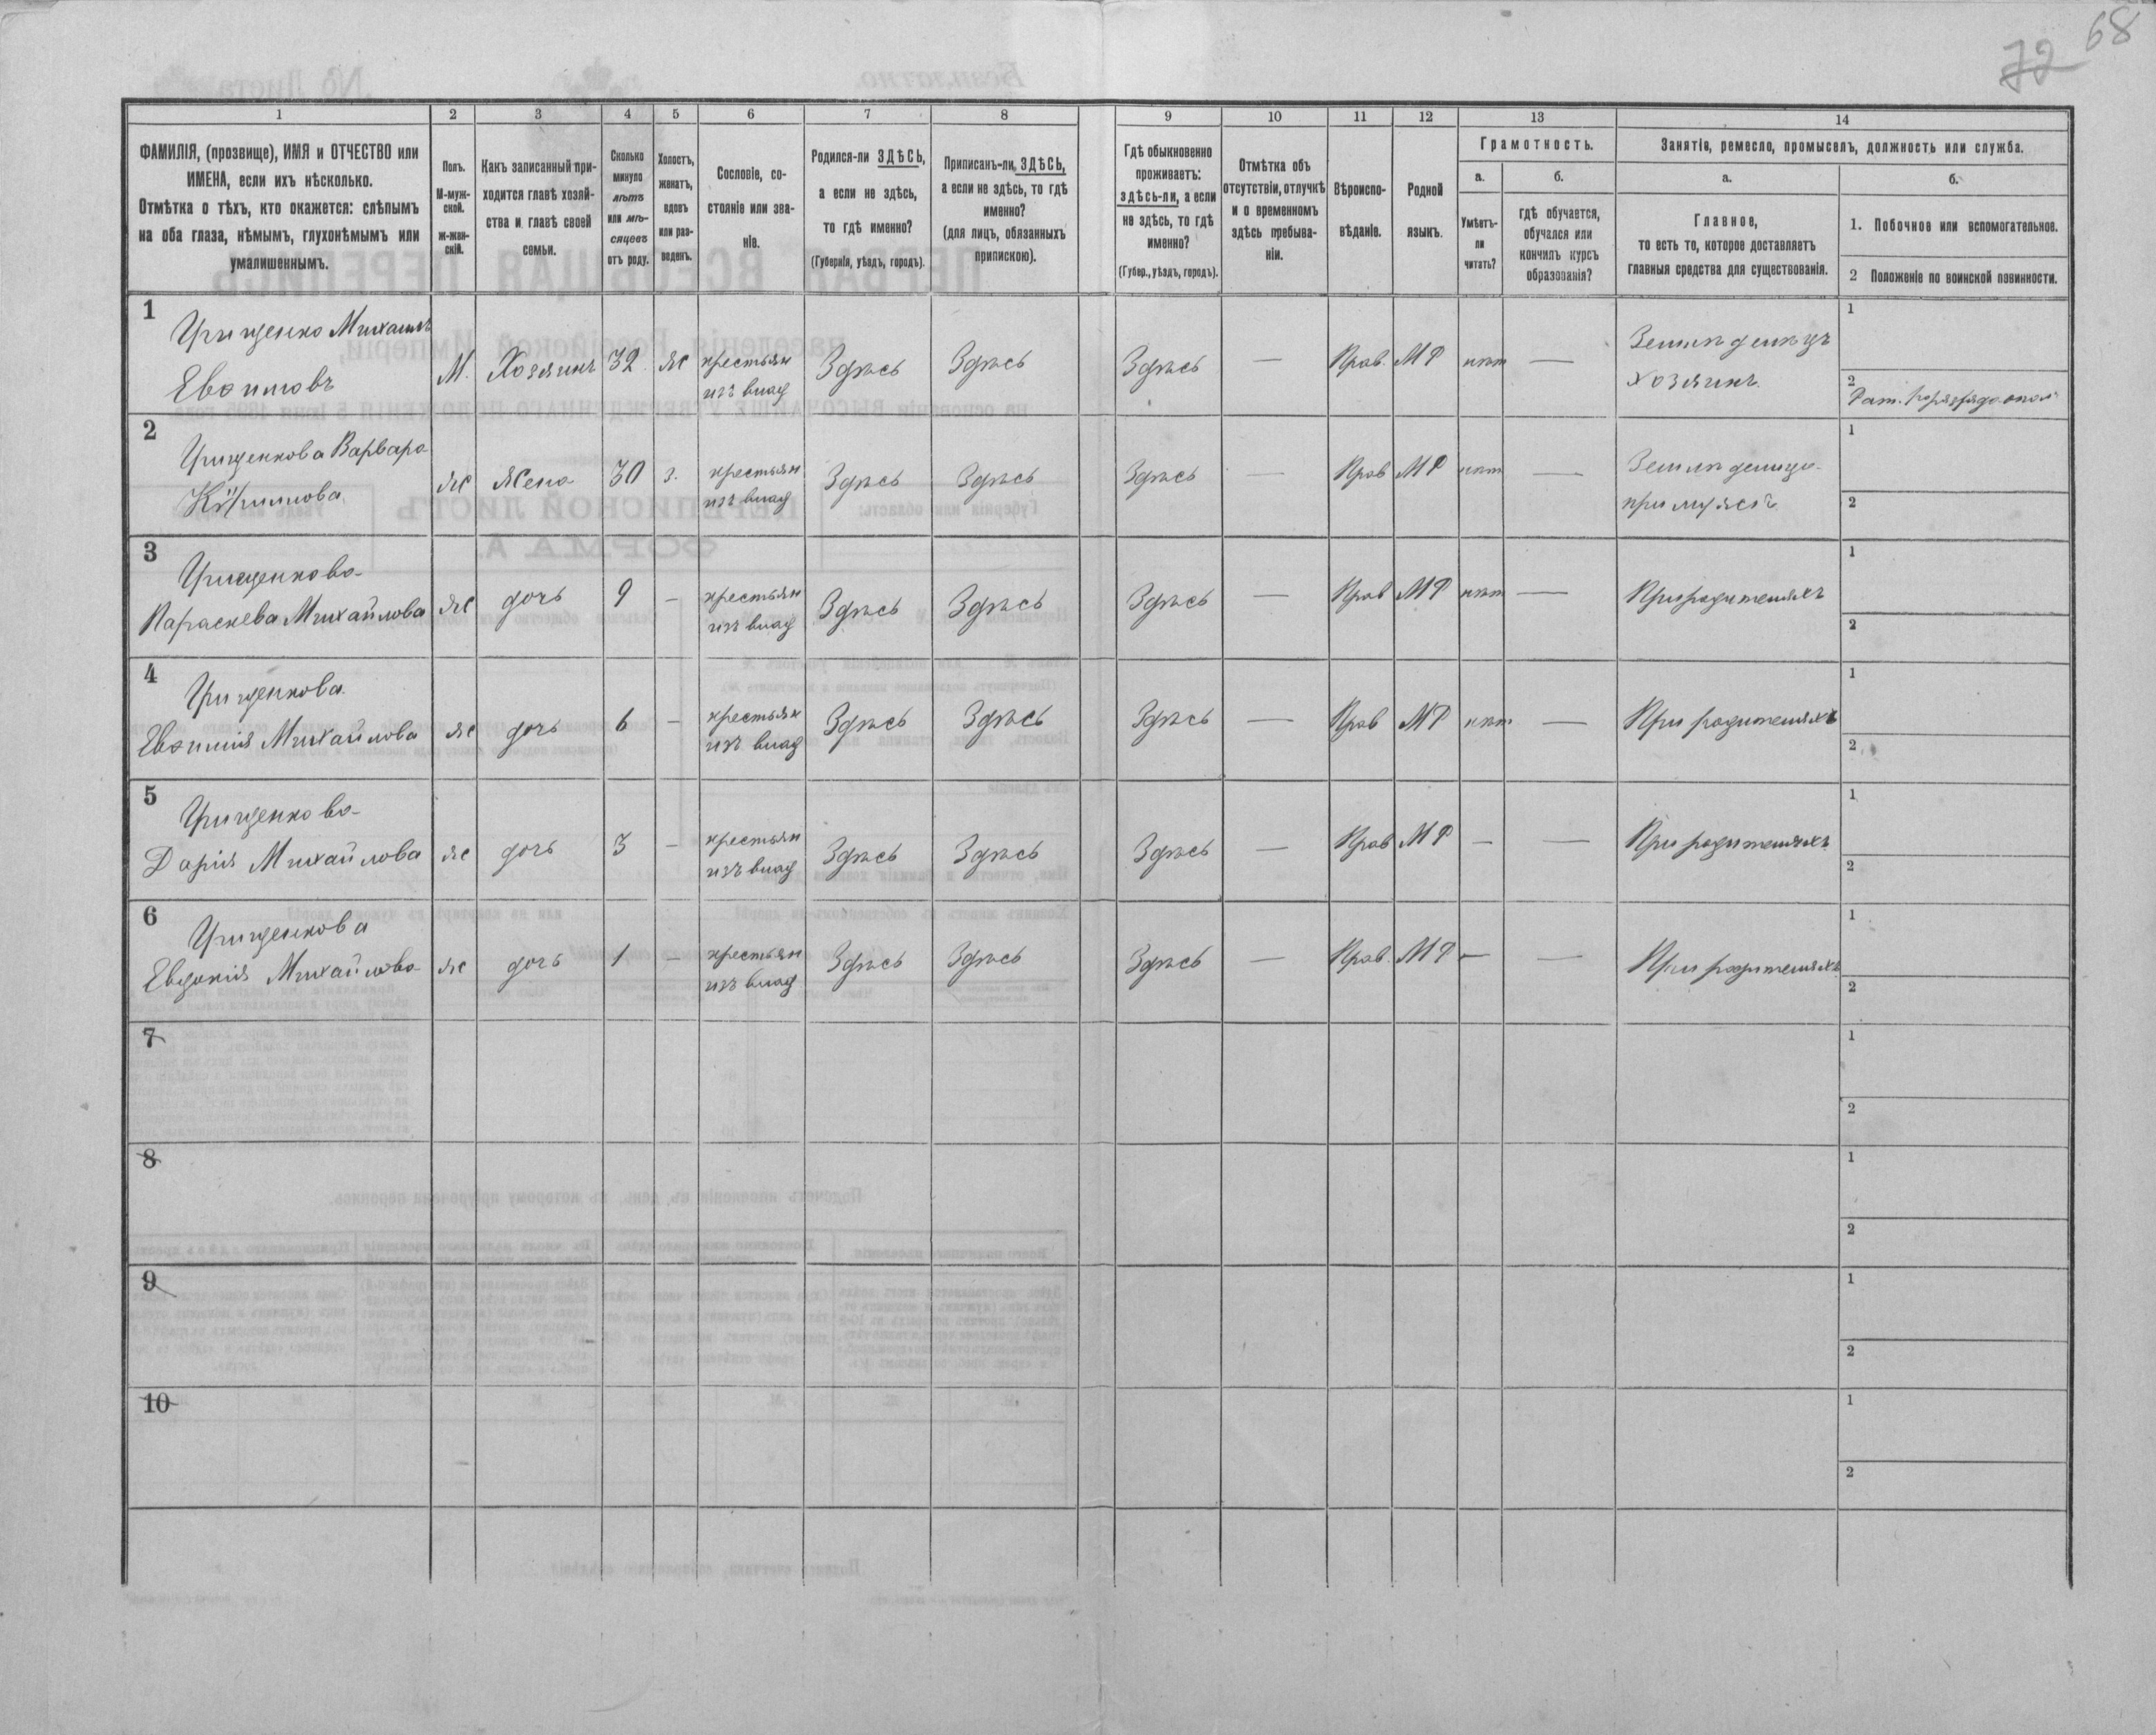 68
72
1 2 3 4 5 6 7 8 9 10 11 12 13 14
ФАМИЛІЯ, (прозвище), ИМЯ и ОТЧЕСТВО или
ИМЕНА, если ихъ нѣсколько.
Отмѣтка о тѣхъ, кто окажется: слѣпымъ
на оба глаза, нѣмымъ, глухонѣмымъ или
умалишеннымъ.
Полъ.
М-муж-
ской.
Ж-жен-
скій.
Какъ записанный при-
ходится главѣ хозяй-
ства и главѣ своей
семьи.
Сколько
минуло
лѣтъ
или мѣ-
сяцевъ
отъ роду.
Холостъ,
женатъ,
вдовъ
или раз-
веденъ.
Сословіе, со-
стояніе или зва-
ніе.
Родился-ли ЗДѢСЬ,
а если не здѣсь,
то гдѣ именно?
(Губернія, уѣздъ, городъ).
Приписанъ-ли, ЗДѢСЬ,
а если не здѣсь, то гдѣ
именно?
(для лицъ, обязанныхъ
припискою).
Гдѣ обыкновенно
проживаетъ:
здѣсь-ли, а если
не здѣсь, то гдѣ
именно?
(Губер., уѣздъ, городъ).
Отмѣтка объ
отсутствіи, отлучкѣ
и о временномъ
здѣсь пребыва-
ніи.
Вѣроиспо-
вѣданіе.
Родной
языкъ.
Грамотность.
а.
Умѣетъ-
ли
читать?
б.
гдѣ обучается,
обучался или
кончилъ курсъ
образованія?
Занятіе, ремесло, промыселъ, должность или служба.
а.
Главное,
то есть то, которое доставляетъ
главныя средства для существованія.
б.
1. Побочное или вспомогательное.
2 Положеніе по воинской повинности.
1
Грищенко Михаилъ
Евѳимовъ
М. Хозяинъ 32 ж крестьян
изъ влад Здѣсь Здѣсь Здѣсь — Прав. МР нѣт —
Земледѣлецъ
хозяинъ
1
2
Рат.
2
Грищенкова Варвара
ж жена 30 з. крестьян
изъ влад Здѣсь Здѣсь Здѣсь — Прав МР нѣт —
Земледѣлица
при мужѣ
1
2
3
Грищенкова
Параскева Михайлова ж дочь 9 — крестьян
изъ влад Здѣсь Здѣсь Здѣсь — Прав МР нѣт — При родителяхъ
1
2
4
Грищенкова
Евѳимія Михайлова ж дочь 6 — крестьян
изъ влад Здѣсь Здѣсь Здѣсь — Прав МР нѣт — При родителяхъ
1
2
5
Грищенкова
Дарія Михайлова ж дочь 3 — крестьян
изъ влад Здѣсь Здѣсь Здѣсь — Прав МР — — При родителяхъ
1
2
6
Грищенкова
Евдокія Михайлова ж дочь 1 — крестьян
изъ влад Здѣсь Здѣсь Здѣсь — Прав. МР — — При родителяхъ
1
2
7
1
2
8
1
2
9
1
2
10
1
2